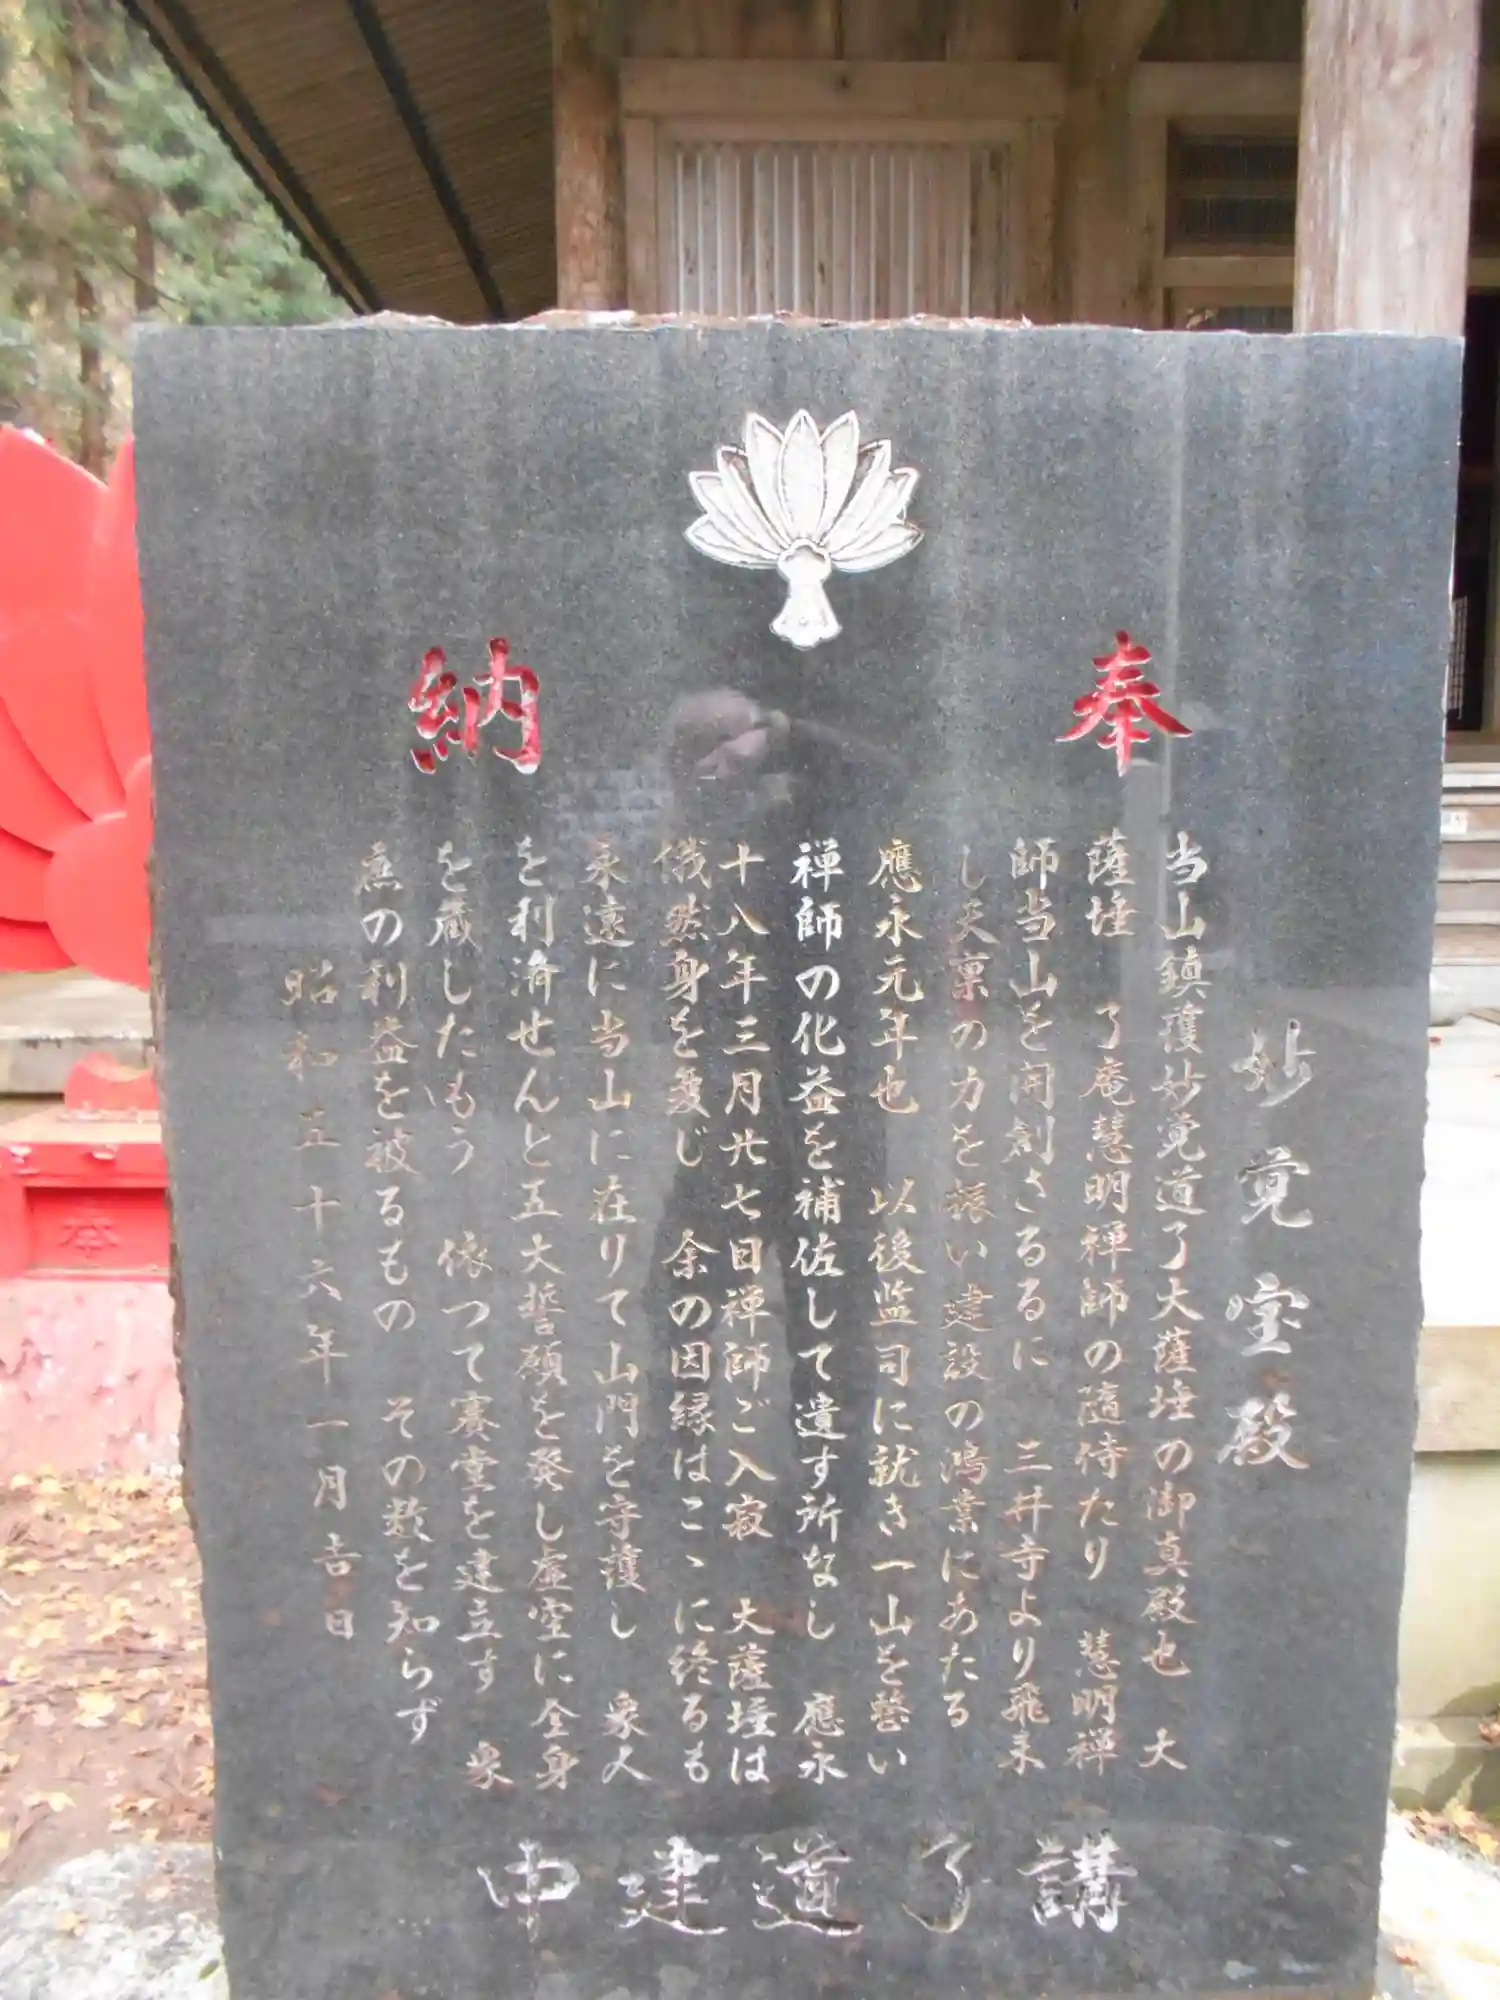 奉納
妙覚宝殿
当山鎮護妙覚道了大薩埵の御真殿也　大
薩埵　了庵慧明禅師の随侍たり　慧明禅
師当山を開創さるるに　三井寺より飛来
し天稟の力を振い建設の鴻業にあたる
應永元年也　以後監司に就き一山を整い
禅師の化益を補佐して遺す所なし　應永
十八年三月廿七日禅師ご入寂　大薩埵は
俄然身を変じ　余の因縁はこゝに終るも
永遠に当山に在りて山門を守護し　衆人
を利済せんと五大誓願を発し虚空に全身
を蔵したもう　依つて賽堂を建立す　衆
庶の利益を被るもの　その数を知らず
昭和五十六年一月吉日
中建道了講
奉